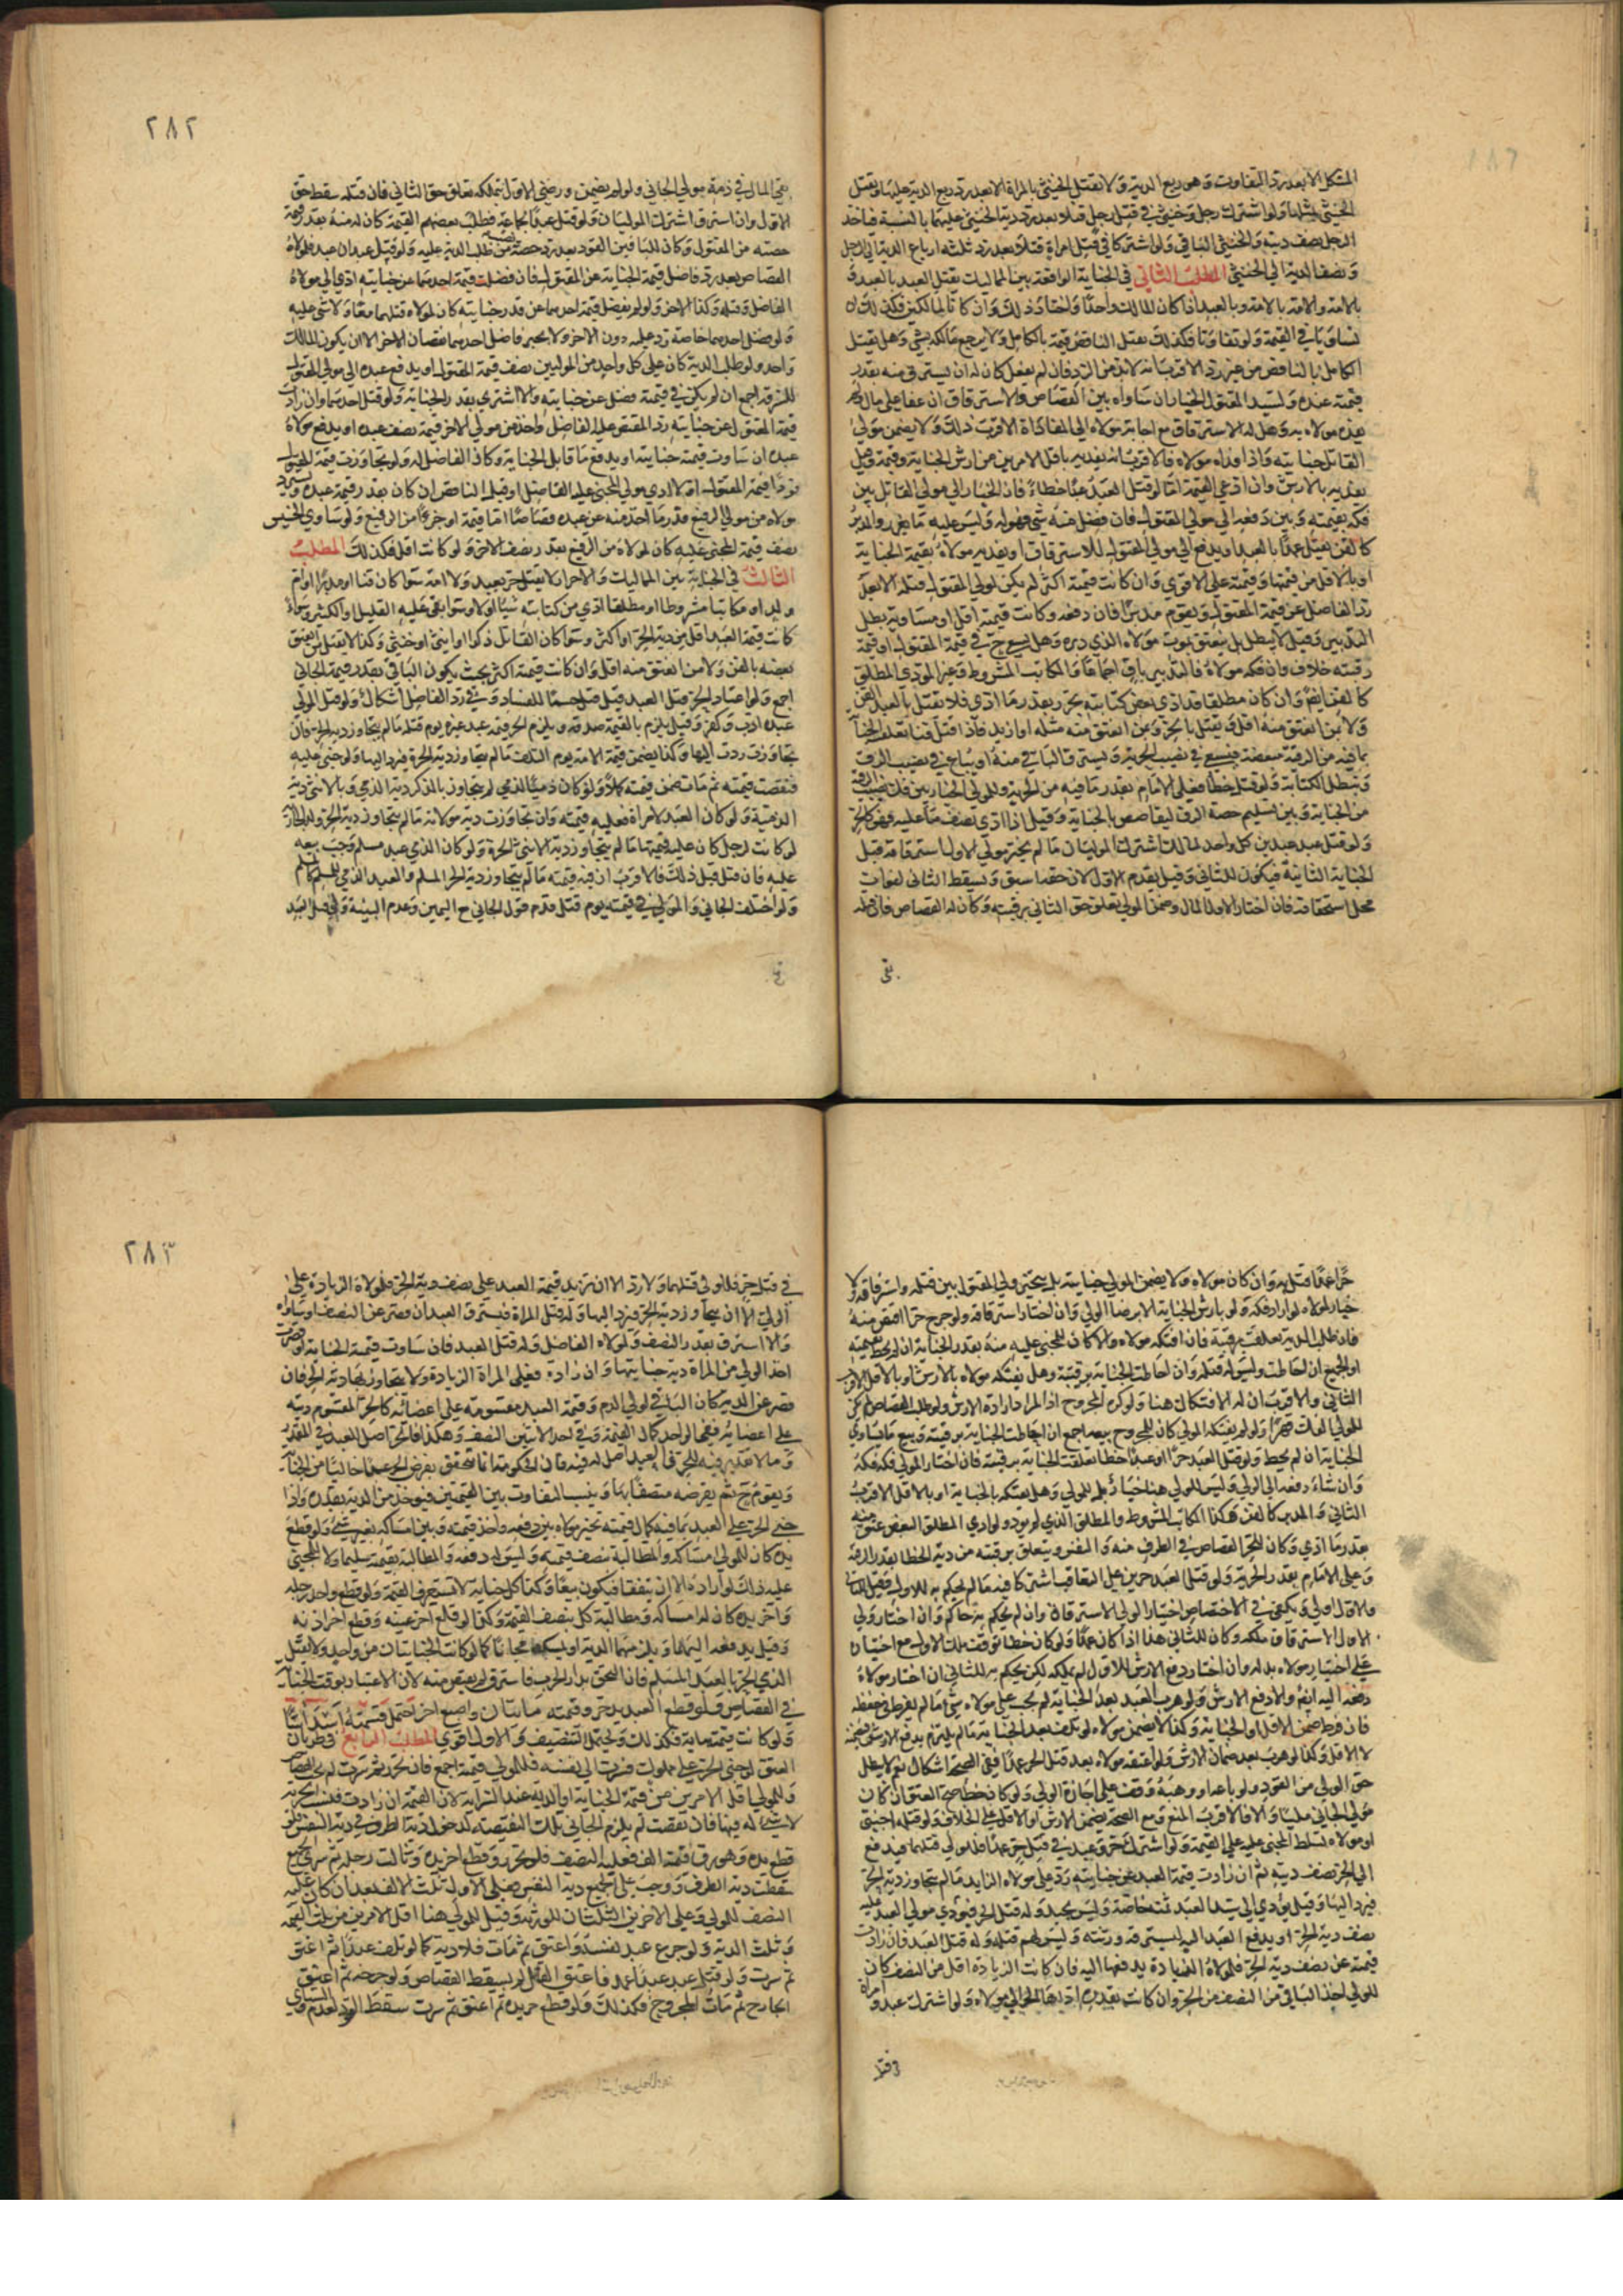 المشكل الا بعد رد التفاوت وهو ربع الدية ولا يقتل الخنثى بالمراة الا بعد رد ربع الدية عليها ويقتل
الخنثى بمثلها ولو اشترك رجل وخنثى في قتل رجل قتلا بعد رد دية الخنثى عليهما بالنسبة فياخذ
الرجل نصف ديته والخنثى الباقي ولو اشتركا في قتل امراة قتلا وبعد رد ثلثه ارباع الدية الى الرجل
ونصف الدية الى الخنثى المطلب الثاني في الجناية الواقعة بين المماليك يقتل العبد بالعبد و
بالامة والامة بالامة وبالعبد ان كان المالك واحدا واختار ذلك وان كانا لمالكين فكذلك ان
تساويا في القيمة ولو تفاوتا فكذلك يقتل الناقص قيمة بالكامل ولا يرجع مالكه بشي وهل يقتل
الكامل بالناقص من غير رد الاقرب انه لابد من الرد فان لم يفعل كان له ان يسترق منه بقدر
قيمة عبده ولسيد المقتول الخيار ان تساواه بين القصاص والاسترقاق ان عفا على مال ولم
يفده مولاه به وهل له الاسترقاق مع اجابة مولاه الى المفاداة الاقرب ذلك ولا يضمن مولى
القاتل جنايته واذا فداه مولاه فالاقرب انه يفديه باقل الامرين من ارش الجناية وقيمته وقيل
يفديه بالارش وان ادعى القيمة اما لو قتل العبد عبدا خطاء فان الخيار الى مولى القاتل بين
فكه بقيمته وبين دفعه الى مولى المقتول فان فضل منه شي فهو له وليس عليه ما يعوز والمدبر
كالقن يقتل عمدا بالعبد او يدفع الى مولى المقتول للاسترقاق او يفديه مولاه بقيمة الجناية
او بالاقل من قيمتها وقيمته على الاقوى وان كانت قيمته اكثر لم يكن لمولى المقتول قتله الا بعد
رد الفاضل عن قيمة المقتول ويقوم مدبرا فان دفعه وكانت قيمته اقل او مساوية بطل
التدبير وقيل لا يبطل بل ينعتق بموت مولاه الذي دبره وهل يسعى ح في قيمة المقتول او قيمة
رقبته خلاف وان فكه مولاه فالتدبير باق اجماعا والمكاتب المشروط وغير المودي المطلق
كالقن ايضا وان كان مطلقا قد ادى بعض كتابته تحرر بقدر ما ادى فلا يقتل بالعبد القن
ولا بمن انعتق منه اقل ويقتل بالحر وبمن انعتق منه مثله او ازيد فاذا قتل قنا تعلقت الجناية
بما فيه من الرقية مبعضة فيسعى في نصيب الحرية ويسترق الباقي منه او يباع في نصيب الرق
وتبطل الكتابة ولو قتل خطأ فعلى الامام بقدر ما فيه من الحرية وللمولى الخيار بين فك نصيب الرقية
من الجناية وبين تسليم حصة الرق ليقاص بالجناية وقيل اذا ادى نصف ما عليه فهو كالحر
ولو قتل عبد عبدين كل واحد لمالك اشترك الموليان ما لم يختر مولى الاول استرقاقه قبل
الجناية الثانية فيكون للثاني وقيل يقدم الاول لان حقه اسبق ويسقط الثاني لفوات
محل استحقاقه فان اختار الاول المال وضمن المولى تعلق حق الثاني برقبته وكان له القصاص فان قتله
بقي
٢٨٢
بقي المال في ذمة مولى الجاني ولو لم يضمن ورضي الاول بتملكه تعلق حق الثاني فان قتله سقط حق
الاول وان استرق اشترك الموليان ولو قتل عبدا لجماعة فطلب بعضهم القيمة كان له منه بقدر قيمة
حصته من المقتول وكان للباقين القود بعد رد حصة من طلب الدية عليه ولو قتل عبدان عبدا فلمولاه
القصاص بعد رد فاضل قيمة الجناية عن المقتول فان فضلت قيمة احدهما عن جنايته ادى الى مولاه
الفاضل وقتله وكذا الاخر ولو لم يفضل قيمة احدهما عن قدر جنايته كان لمولاه قتلهما معا ولا شي عليه
ولو فضل احدهما خاصة رد عليه دون الاخر ولا يجبر فاضل احدهما نقصان الاخر الا ان يكون المالك
واحدا ولو طلب الدية كان على كل واحد من الموليين نصف قيمة المقتول او يدفع عبده الى مولى المقتول
ليسترقه اجمع ان لم يكن في قيمته فضل عن جنايته والا استرق بقدر الجناية ولو قتل احدهما وان زادت
قيمة المقتول عن جنايته رد المقتص عليه الفاضل واخذ من مولى الاخر قيمة نصف عبده او يدفع مولاه
عبده ان ساوت قيمته جنايته او يدفع ما قابل الجناية وكان الفاضل له ولو تجاوزت قيمة المقتول
مولاه من مولى الرفيع قدر ما اخذ منه عن عبده قصاصا اما قيمة او جزءا من الرفيع ولو ساوى الخسيس
نصف قيمة المجنى عليه كان لمولاه من الرفيع بقدر نصف الاخر ولو كانت اقل فكذلك المطلب
الثالث في الجناية بين المماليك والاحرار لا يقتل حر بعبد ولا امة سوا كان قنا او مدبرا او ام
ولد او مكاتبا مشروطا او مطلقا ادى من كتابته شيئا اولا وسوا بقي عليه القليل او الكثير وسواء
كانت قيمة العبد اقل من دية الحر او اكثر وسوا كان القاتل ذكرا او انثى او خنثى وكذا لا يقتل من انعتق
بعضه بالقن ولا من انعتق منه اقل وان كانت قيمته اكثر بحيث يكون الباقي بقدر قيمة الجاني
اجمع ولو اعتاد الحر قتل العبد قيل قتل حسما للفساد وفي رد الفاضل اشكال ولو قتل المولى
عبده ادب وكفر وقيل يلزم بالقيمة صدقة ويلزم الحر قيمة عبد غيره يوم قتله ما لم يتجاوز دية الحر فان
تجاوزت ردت اليها وكذا يضمن قيمة الامة يوم التلف ما لم يتجاوز دية الحرة فيرد اليها ولو جنى عليه
فنقصت قيمته ثم مات ضمن قيمته كملا ولو كان ذميا لذمي لم يتجاوز بالذكر دية الذمي وبالانثى دية
الذمية ولو كان العبد لامراة فعليه قيمته وان تجاوزت دية مولاته ما لم يتجاوز دية الحر والجارية
لو كانت لرجل كان عليه قيمتها ما لم يتجاوز دية الانثى الحرة ولو كان للذمي عبد مسلم وجب بيعه
عليه فان قتل قبل ذلك فالاقرب ان فيه قيمته ما لم يتجاوز دية الحر المسلم والعبد الذمي للمسلم كالمسلم
ولو اختلف الجاني والمولى في قيمته يوم قتل قدم قول الجاني مع اليمين وعدم البينة ولو قتل العبد
حرا عمدا قتل به وان كان مولاه ولا يضمن المولى جنايته بل يتخير ولي المقتول بين قتله واسترقاقه ولا
خيار لمولاه لو اراد فكه ولو بارش الجناية الا برضا الولي وان اختار استرقاقه ولو جرح حرا اقتص منه
فان طلب الدية تعلقت برقبته فان افتكه مولاه والا كان للمجنى عليه منه بقدر الجناية ان لم يحط بقيمته
او الجميع ان احاطت وليس له قتله وان احاطت الجناية برقبته وهل يفتكه مولاه بالارش او بالاقل الاقرب
الثاني والاقرب ان له الافتكاك هنا ولو كره المجروح اذا لمراد ارادة الارش ولو طلب القصاص لم يكن
للمولى الفك قهرا ولو لم يفتكه المولى كان للمجروح بيعه اجمع ان احاطت الجناية برقبته وبيع ما يساوي
الجناية ان لم يحط ولو قتل العبد حرا او عبدا خطا تعلقت الجناية برقبته فان اختار المولى فكه فكه
وان شاء دفعه الى الولي وليس للولي هنا خيار بل للمولى وهل يفتكه بالجناية او بالاقل الاقرب
الثاني والمدبر كالقن وكذا المكاتب المشروط والمطلق الذي لم يود ولو ادى المطلق البعض عتق منه
بقدر ما ادى وكان للحر القصاص في الطرف منه والنفس ويتعلق برقبته من دية الخطا بقدر الرقية
وعلى الامام بقدر الحرية ولو قتل العبد حرين على التعاقب اشتركا فيه ما لم يحكم به للاول فيقتل للثاني
والاول اولى ويكفي في الاختصاص اختيار الولي الاسترقاق وان لم يحكم به حاكم وان اختار ولي
الاول الاسترقاق ملكه وكان للثاني هذا اذا كان عمدا ولو كان خطا توقف ملك الاول مع اختياره
على اختيار مولاه بدله وان اختار دفع الارش للاول لم يملكه لكن يحكم به للثاني ان اختار مولاه
دفعه اليه ايضا والا دفع الارش ولو هرب العبد بعد الجناية لم يجب على مولاه شي ما لم يفرط في حفظه
فان فرط ضمن الاقل او الجناية وكذا لا يضمن مولاه لو تلف بعد الجناية ما لم يلتزم بدفع الارش فيضمنه
لا الاقل وكذا لو هرب بعد ضمان الارش ولو اعتقه مولاه بعد قتل الحر عمدا ففي الصحة اشكال نعم لا يبطل
حق الولي من القود ولو باعه او وهبه وقف على اجازة الولي ولو كان خطا صح العتق ان كان
مولى الجاني مليا والا فالاقرب المنع ومع الصحة يضمن الارش او الاقل على الخلاف ولو قتله اجنبي
او مولاه تسلط المجنى عليه على القيمة ولو اشترك حر وعبد في قتل حر عمدا فللولي قتلهما ويدفع
الى الحر نصف ديته ثم ان زادت قيمة العبد عن جنايته رد على مولاه الزايد ما لم يتجاوز دية الحر
فيرد اليها وقيل يؤدى الى سيد العبد ثمنه خاصة وليس بجيد وله قتل الحر فيؤدي مولى العبد عليه
نصف دية الحر او يدفع العبد اليه ليسترقه ورثته وليس لهم قتله وله قتل العبد فان زادت
قيمته عن نصف دية الحر فلمولاه الزيادة يدفعها اليه فان كانت الزيادة اقل من النصف كان
للولي اخذ الباقي من النصف من الحر وان كانت بقدره اداها الحر الى مولاه ولو اشترك عبد وامراة
في قتل
٢٨٣
في قتل حر فللولي قتلهما ولا رد الا ان تزيد قيمة العبد على نصف دية الحر فلمولاه الزيادة على
الولي الا ان يتجاوز دية الحر فيرد اليها وله قتل المراة فيسترق العبد ان قصر عن النصف او ساواه
والا استرق بقدر النصف ولمولاه الفاضل وله قتل العبد فان ساوت قيمته الجناية او قصرت
اخذ الولي من المراة دية جنايتها وان زادت فعلى المراة الزيادة ولا يتجاوز بها دية الحر فان
قصر عن الدية كان الباقي لولي الدم وقيمة العبد مقسومة على اعضائه كالحر المقسوم ديته
على اعضائه ففي الواحد كمال القيمة وفي احد الاثنين النصف وهكذا فالحر اصل للعبد في المقدر
وما لا تقدير فيه للحر فالعبد اصل له فيه فان الحكومة انما تتحقق بفرض الحر عبدا خاليا من الجناية
ويقوم ح ثم يفرضه متصفا بها وينسب التفاوت بين القيمتين فيوخذ من الدية بقدره واذا
جنى الحر على العبد بما فيه كمال قيمته تخير مولاه بين دفعه واخذ قيمته وبين امساكه بغير شي ولو قطع
يده كان للمولى امساكه والمطالبة بنصف قيمته وليس له دفعه والمطالبة بقيمته سليما ولا للمجني
عليه ذلك لو اراده الا ان يتفقا فيكون بيعا وكذا كل جناية لا تستوعب القيمة ولو قطع واحد رجله
واخر يده كان له امساكه ومطالبة كل بنصف القيمة وكذا لو قلع اخر عينه وقطع اخر اذنه
وقيل يدفعه اليهما ويلزمهما الدية او يمسكه مجانا كما لو كانت الجنايتان من واحد ولا يقتل
الذمي الحر بالعبد المسلم فان التحق بدار الحرب فاسترق لم يقتص منه لان الاعتبار بوقت الجناية
في القصاص فلو قطع العبد يد حر وقيمته مائتان واصبع اخر احتمل قسمته اسداسا
ولو كانت قيمته مائة فكذلك ويحتمل التنصيف والاول اقوى المطلب الرابع في طريان
العتق لو جنى الحر على مملوك فسرت الى نفسه فللمولى قيمته اجمع فان تحرر ثم سرت لم يجب القصاص
وللمولى اقل الامرين من قيمة الجناية او الدية عند السراية لان القيمة ان زادت فبسبب الحرية
لا شي له فيها فان نقصت لم يلزم الجاني تلك النقيصة لدخول دية الطرف في دية النفس فلو
قطع يده وهو رق قيمته الف فعليه النصف فلو تحرر وقطع اخر يده وثالث رجله ثم سرى الجميع
سقطت دية الطرف ووجب على الجميع دية النفس فعلى الاول ثلث الالف بعد ان كان عليه
النصف للمولى وعلى الاخرين الثلثان للورثة وقيل للمولى هنا اقل الامرين من ثلث القيمة
وثلث الدية ولو جرح عبد نفسه واعتق ثم مات فلا دية كما لو تلف عبدا ثم اعتق
ثم سرت ولو قتل عبد عبدا عمدا فاعتق القاتل لم يسقط القصاص ولو جرحه ثم اعتق
الجارح ثم مات المجروح فكذلك ولو قطع حر يده ثم اعتق ثم سرت سقط القود لعدم التساوي